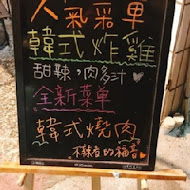 人氣菜單
韓式炸雞
甜辣，肉多汁
全新菜單
韓式燒肉
不辣者的福音